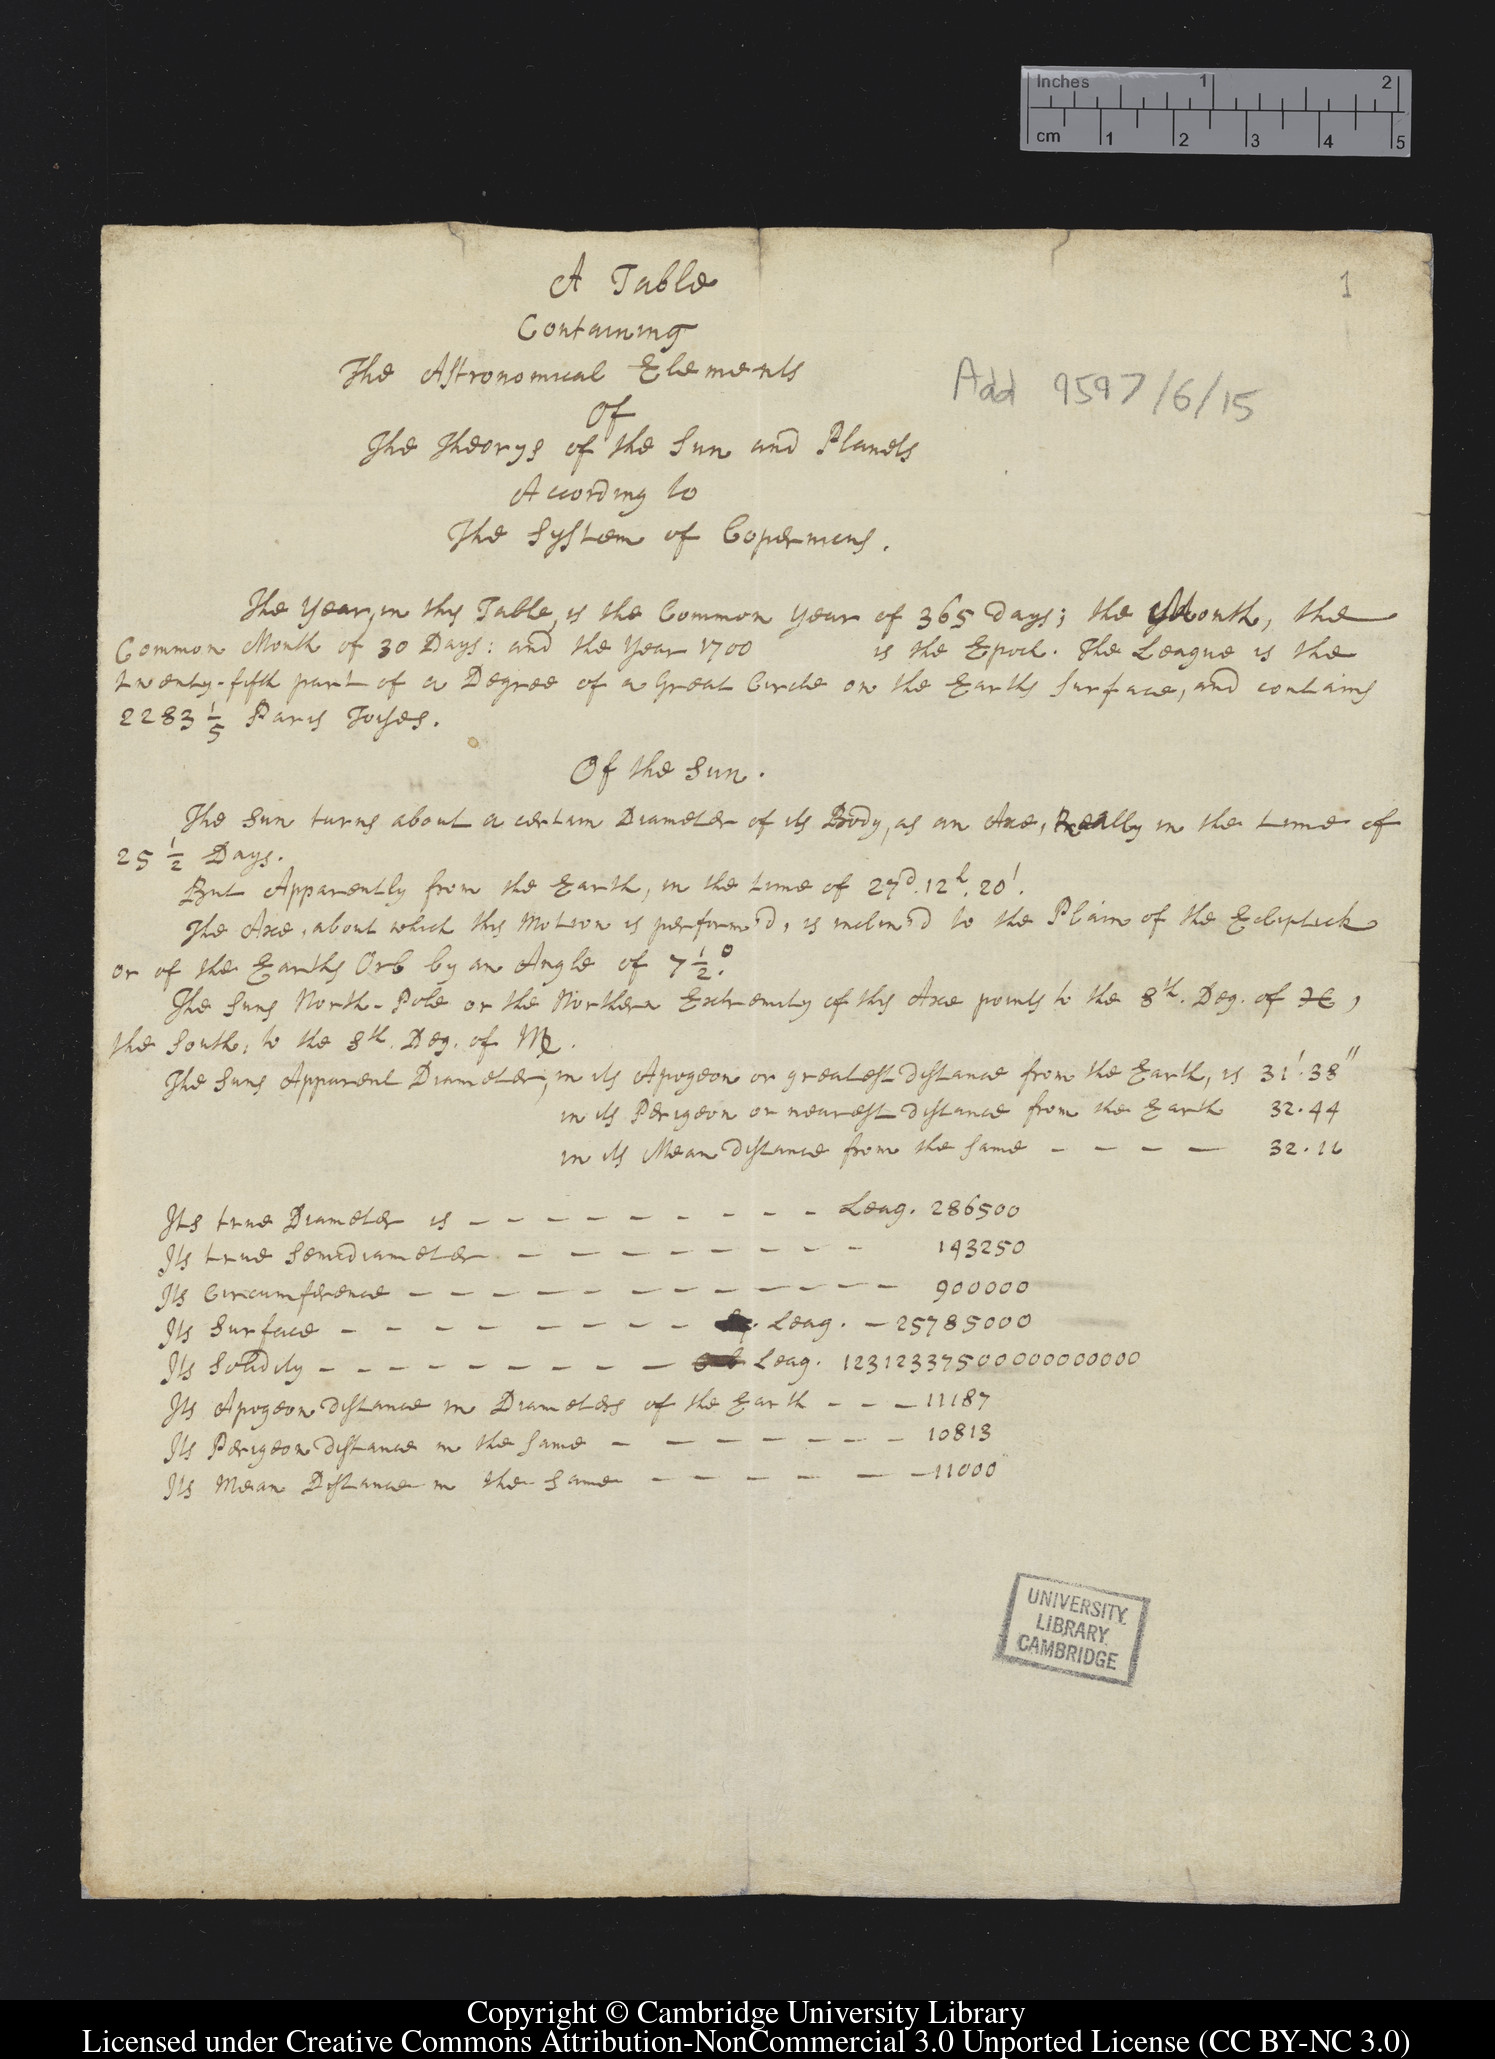 Inches 1 2
cm 1 2 3 4 5
A Table
1
Containing
The Astronomical Elements
Add 9597/6/15
Of
The Theorys of the Sun and Planets
According to
The System of Copernicus.
The Year, in this Table, is the Common Year of 365 Days; the Month, the
Common Month of 30 Days: and the Year 1700 is the Epoch. The League is the
twenty-fifth part of a Degree of a Great Circle on the Earths Surface, and contains
2283 1/5 Paris Toises.
Of the Sun.
The Sun turns about a certain Diameter of its Body, as an Axe, Really in the time of
25 1/2 Days.
But Apparently from the Earth, in the time of 27d. 12h. 20'.
The Axe, about which this Motion is perform'd, is inclin'd to the Plain of the Ecliptick
or of the Earths Orb by an Angle of 7 1/2°.
The Suns North-Pole or the Northern Extremity of this Axe points to the 8th. Deg. of ♓,
the South, to the 8th. Deg. of ♍.
The Suns Apparent Diameter, in its Apogeon or greatest distance from the Earth, is 31'. 38"
in its Perigeon or nearest distance from the Earth 32. 44
in its Mean distance from the same - - - - 32. 11
Its true Diameter is - - - - - - - - - - Leag. 286500
Its true Semidiameter - - - - - - - - - 143250
Its Circumference - - - - - - - - - - - - 900000
Its Surface - - - - - - - - Leag. - 25785000
Its Solidity - - - - - - - - - - Leag. 1231233750000000000
Its Apogeon distance in Diameters of the Earth - - - 11187
Its Perigeon distance in the same - - - - - - - 10813
Its Mean Distance in the same - - - - - - - 11000
UNIVERSITY
LIBRARY
CAMBRIDGE
Copyright © Cambridge University Library
Licensed under Creative Commons Attribution-NonCommercial 3.0 Unported License (CC BY-NC 3.0)